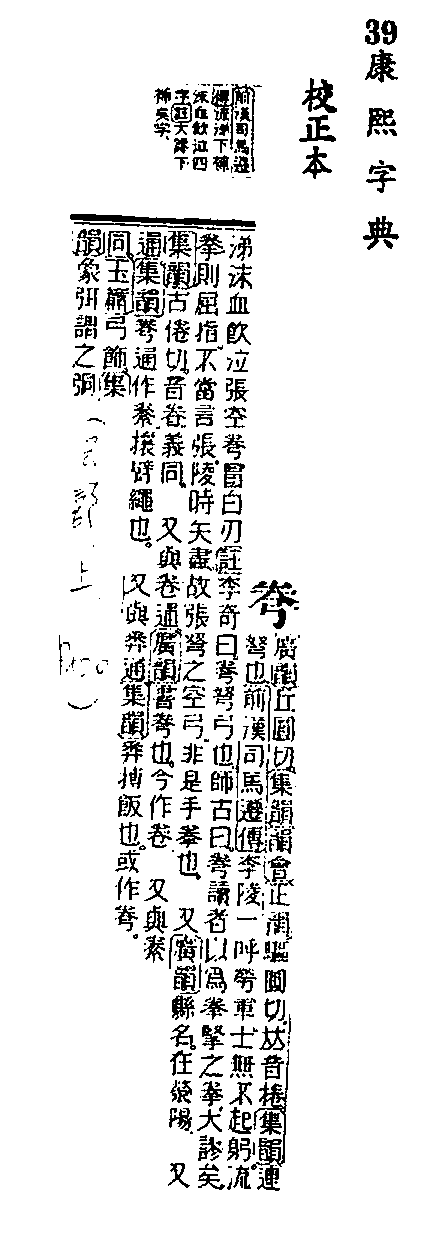 39康熙字典
校正本
前漢司馬遷
傳流涕下補
沬血飲泣四
字註大謬下
補矣字
弮
廣韻丘圓切集韻韻會正韻驅圓切𠀤音棬集韻連
弩也前漢司馬遷傳李陵一呼勞軍士無不起躬流
涕沬血飲泣張空弮冒白刃註李奇曰弮弩弓也師古曰弮讀者以爲拳擊之拳大謬矣
拳則屈指不當言張陵時矢盡故張弩之空弓非是手拳也 又廣韻縣名在滎陽 又
集韻古倦切音眷義同 又與卷通廣韻書弮也今作卷 又與絭
通集韻弮通作絭攘臂繩也。又與𢍏通集韻𢍏摶飯也。或作弮。
同玉篇弓飾集
韻象弭謂之弲